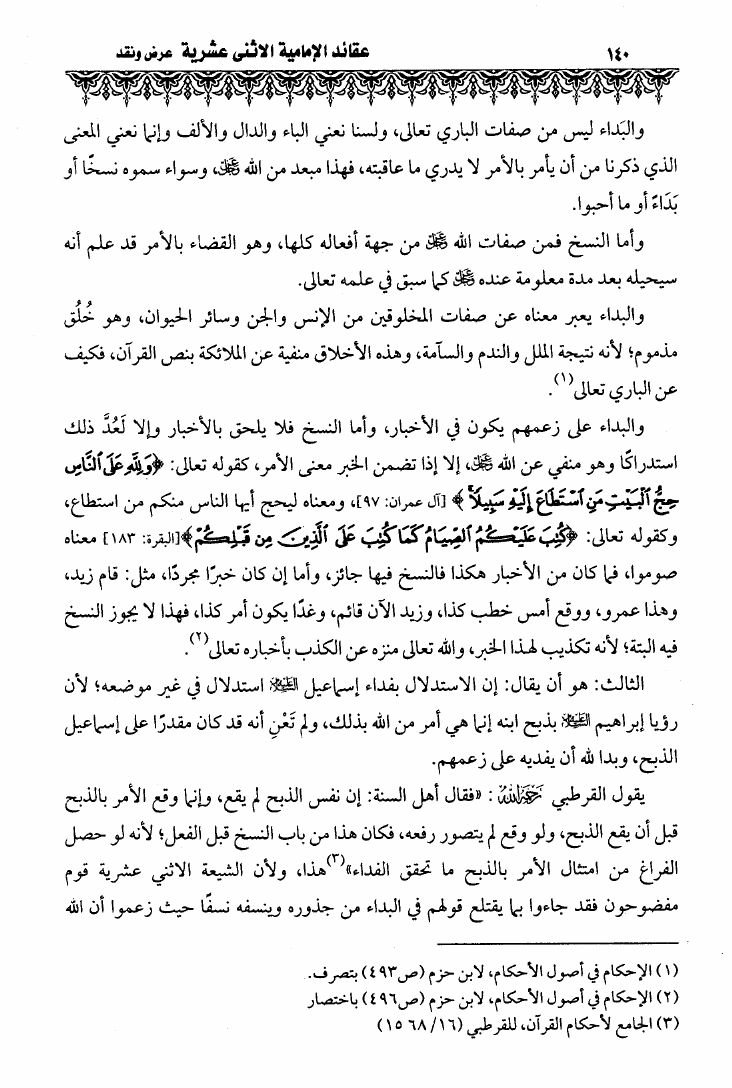 ١٤٠
عقائد الإمامية الاثنى عشرية عرض ونقد
والبَداء ليس من صفات الباري تعالى، ولسنا نعني الباء والدال والألف وإنما نعني المعنى
الذي ذكرنا من أن يأمر بالأمر لا يدري ما عاقبته، فهذا مبعد من الله ﷻ، وسواء سموه نسخًا أو
بَدَاءً أو ما أحبوا.
وأما النسخ فمن صفات الله ﷻ من جهة أفعاله كلها، وهو القضاء بالأمر قد علم أنه
سيحيله بعد مدة معلومة عنده ﷻ كما سبق في علمه تعالى.
والبداء يعبر معناه عن صفات المخلوقين من الإنس والجن وسائر الحيوان، وهو خُلُق
مذموم؛ لأنه نتيجة الملل والندم والسآمة، وهذه الأخلاق منفية عن الملائكة بنص القرآن، فكيف
عن الباري تعالى(١).
والبداء على زعمهم يكون في الأخبار، وأما النسخ فلا يلحق بالأخبار وإلا لَعُدَّ ذلك
استدراكًا وهو منفي عن الله ﷻ، إلا إذا تضمن الخبر معنى الأمر، كقوله تعالى: ﴿وَلِلَّهِ عَلَى ٱلنَّاسِ
حِجُّ ٱلْبَيْتِ مَنِ ٱسْتَطَاعَ إِلَيْهِ سَبِيلًا﴾ [آل عمران: ٩٧]، ومعناه ليحج أيها الناس منكم من استطاع،
وكقوله تعالى: ﴿كُتِبَ عَلَيْكُمُ ٱلصِّيَامُ كَمَا كُتِبَ عَلَى ٱلَّذِينَ مِن قَبْلِكُمْ﴾[البقرة: ١٨٣] معناه
صوموا، فما كان من الأخبار هكذا فالنسخ فيها جائز، وأما إن كان خبرًا مجردًا، مثل: قام زيد،
وهذا عمرو، ووقع أمس خطب كذا، وزيد الآن قائم، وغدًا يكون أمر كذا، فهذا لا يجوز النسخ
فيه البتة؛ لأنه تكذيب لهذا الخبر، والله تعالى منزه عن الكذب بأخباره تعالى(٢).
الثالث: هو أن يقال: إن الاستدلال بفداء إسماعيل عليه السلام استدلال في غير موضعه؛ لأن
رؤيا إبراهيم عليه السلام بذبح ابنه إنما هي أمر من الله بذلك، ولم تَعْنِ أنه قد كان مقدرًا على إسماعيل
الذبح، وبدا لله أن يفديه على زعمهم.
يقول القرطبي رحمه الله: «فقال أهل السنة: إن نفس الذبح لم يقع، وإنما وقع الأمر بالذبح
قبل أن يقع الذبح، ولو وقع لم يتصور رفعه، فكان هذا من باب النسخ قبل الفعل؛ لأنه لو حصل
الفراغ من امتثال الأمر بالذبح ما تحقق الفداء»(٣)هذا، ولأن الشيعة الاثني عشرية قوم
مفضوحون فقد جاءوا بما يقتلع قولهم في البداء من جذوره وينسفه نسفًا حيث زعموا أن الله
(١) الإحكام في أصول الأحكام، لابن حزم (ص٤٩٣) بتصرف.
(٢) الإحكام في أصول الأحكام، لابن حزم (ص٤٩٦) باختصار
(٣) الجامع لأحكام القرآن، للقرطبي (١٦/ ١٥٦٨)